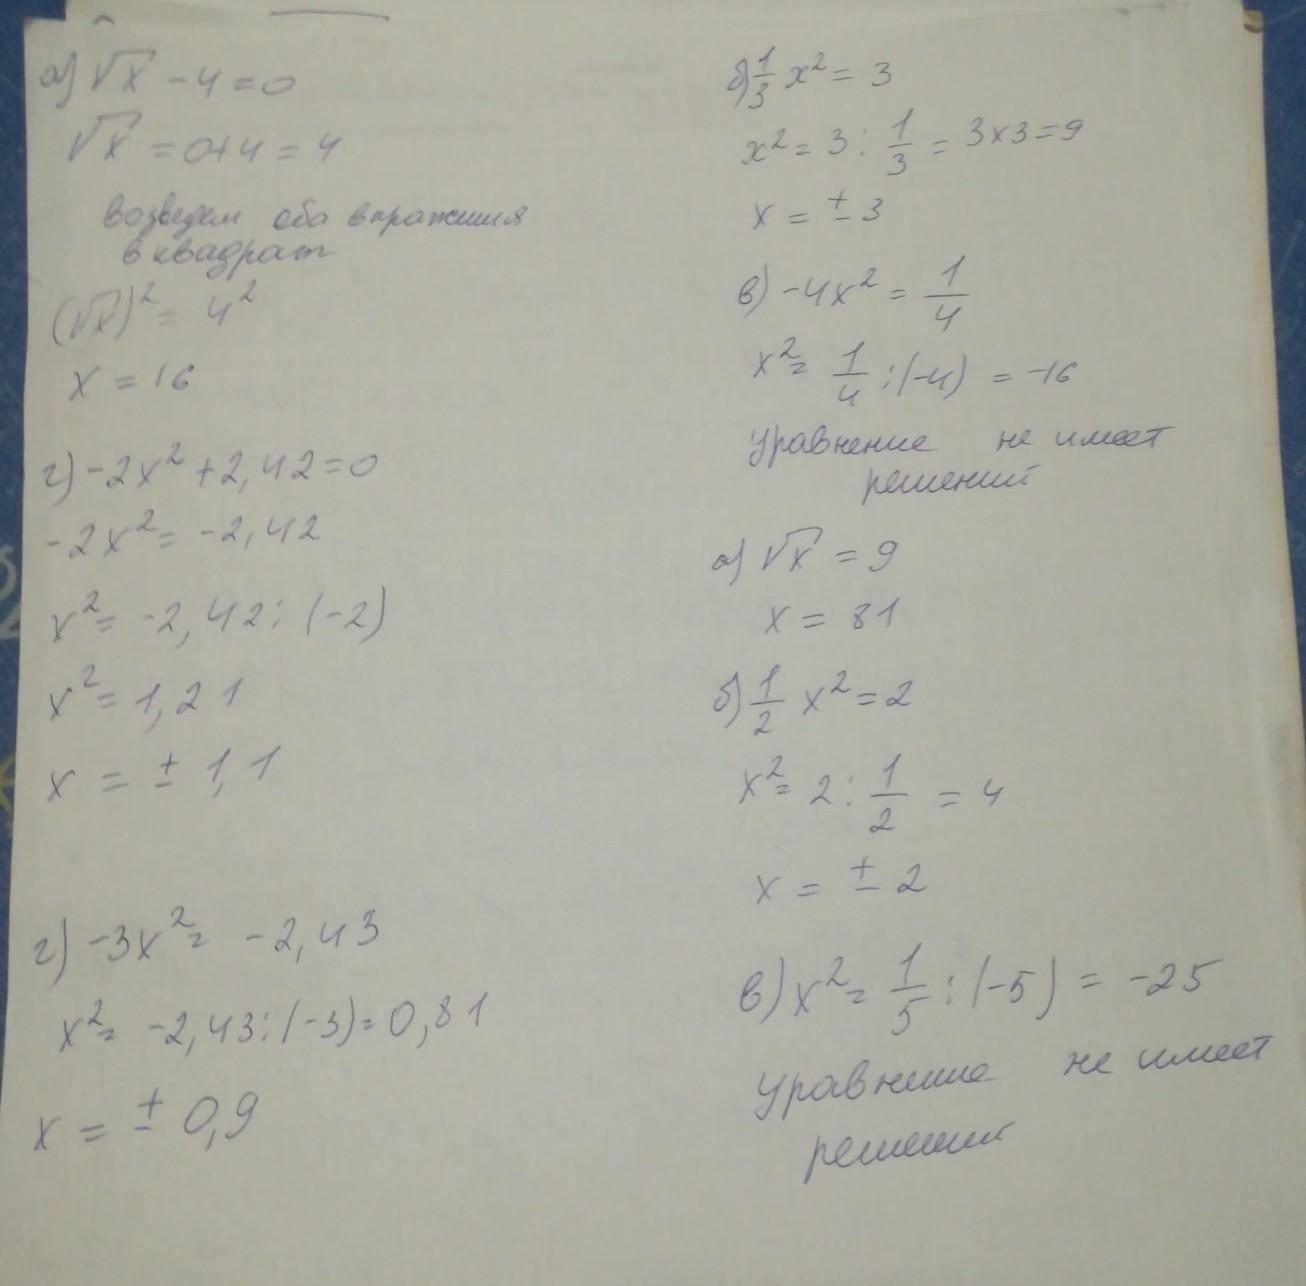 а) √x - 4 = 0
√x = 0+4 = 4
возведем оба выражения
в квадрат
(√x)² = 4²
x = 16
г) -2x² + 2,42 = 0
-2x² = -2,42
x² = -2,42 : (-2)
x² = 1,21
x = ± 1,1
г) -3x² = -2,43
x² = -2,43 : (-3) = 0,81
x = ± 0,9
б) 1/3 x² = 3
x² = 3 : 1/3 = 3×3 = 9
x = ± 3
в) -4x² = 1/4
x² = 1/4 : (-4) = -16
уравнение не имеет
решений
а) √x = 9
x = 81
б) 1/2 x² = 2
x² = 2 : 1/2 = 4
x = ± 2
в) x² = 1/5 : (-5) = -25
уравнение не имеет
решений